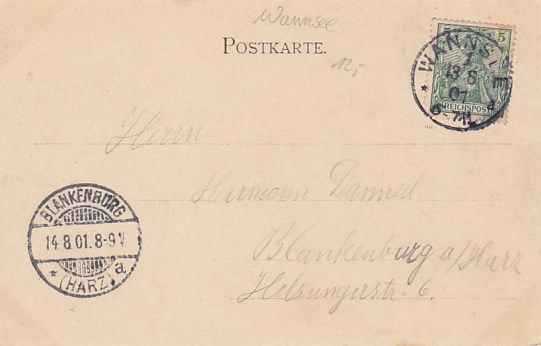 Wannsee
POSTKARTE.
12,-
5
REICHSPOST
* WANNSEE *
13 8
01
6-7N.
Herrn
Hermann Danned
Blankenburg a/Harz
Helsungerstr. 6.
BLANKENBURG
14.8.01.8-9V
* (HARZ) a